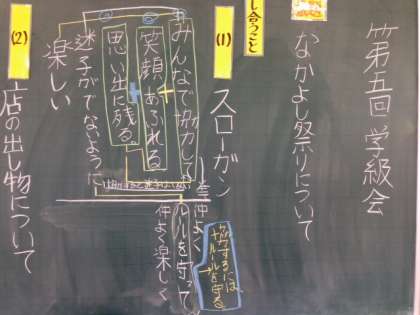 第五回学級会
なかよし祭りについて
し合うこと
(1)
スローガン
協力するには、
ルールを守る。
仲よく
ルールを守って
仲よく楽しく
みんなで協力して
笑顔あふれる
思い出に残る
迷子がでないように
楽しい
(2)
店の出し物について